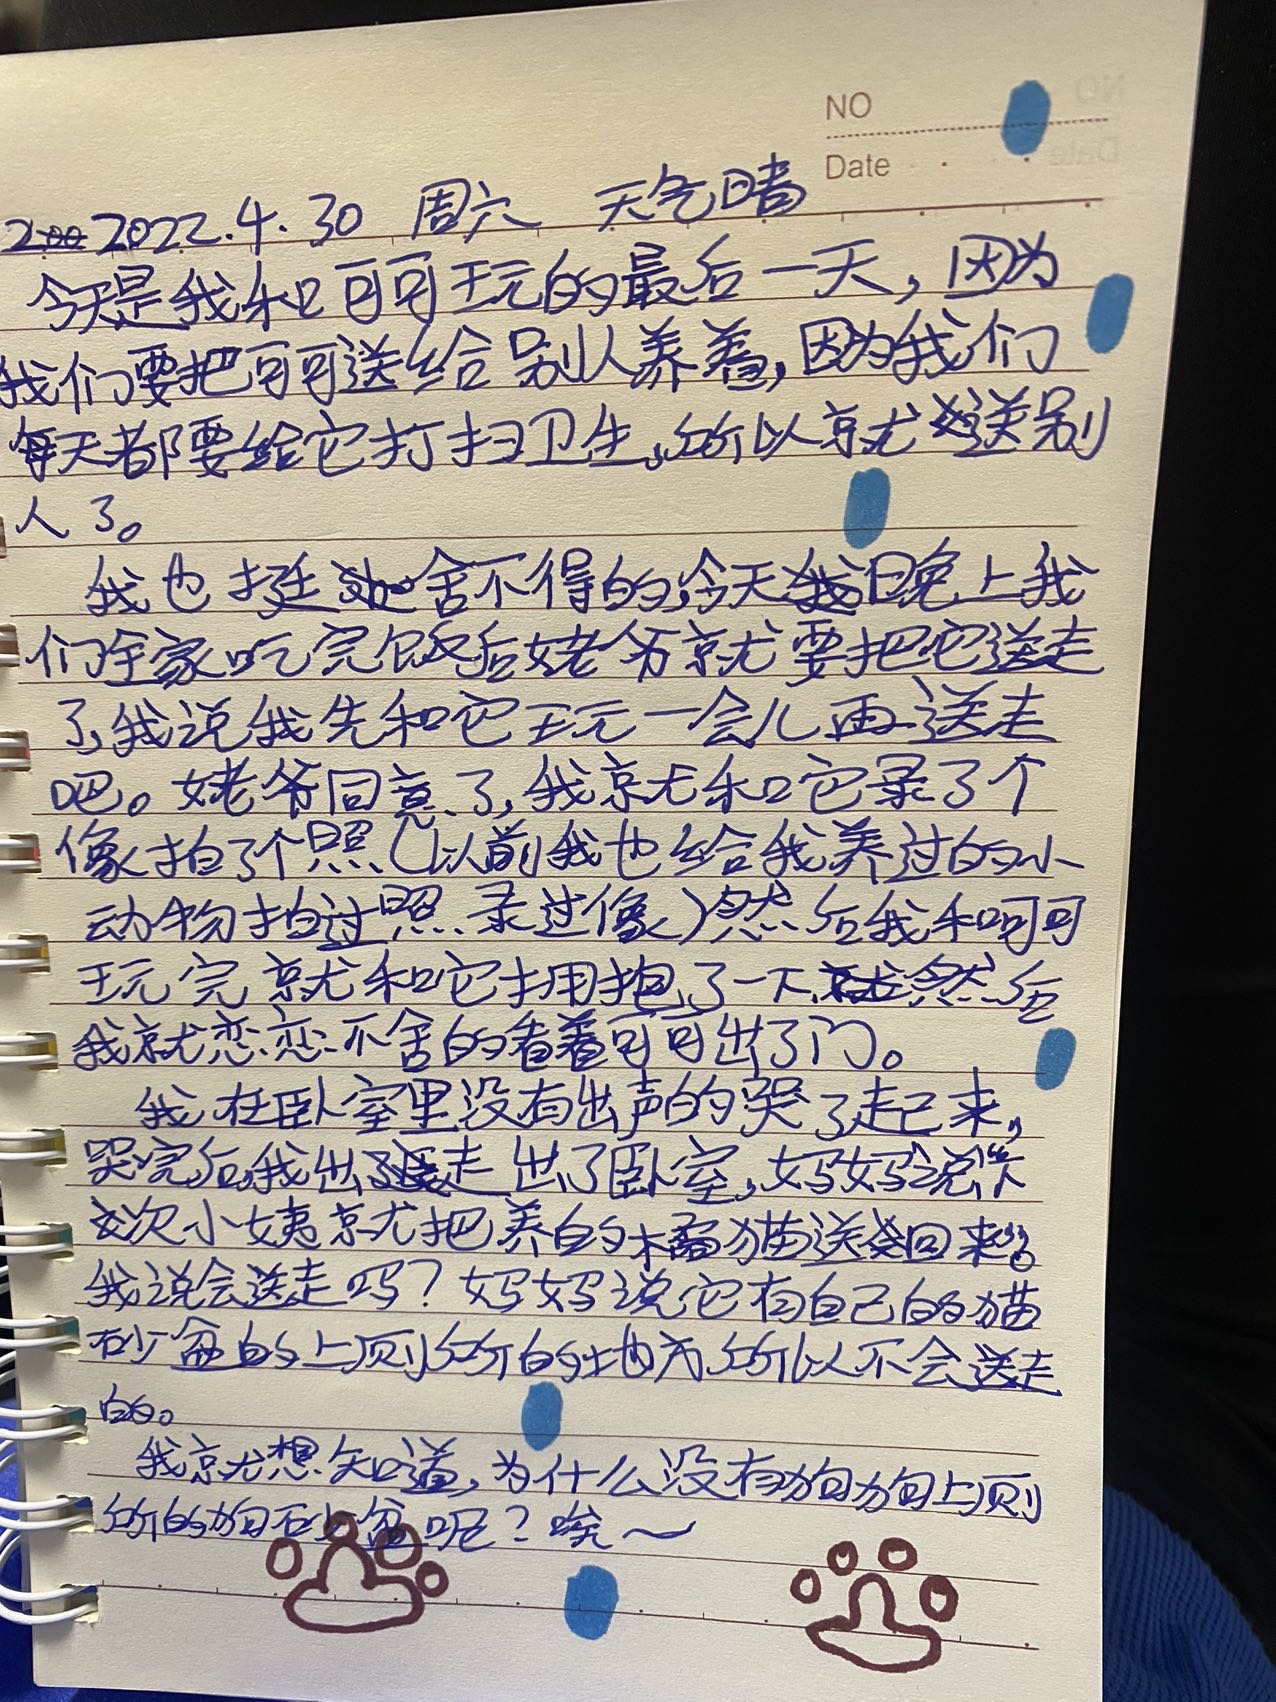 NO
Date
2022.4.30 周六 天气晴
今天是我和可可玩的最后一天，因为
我们要把可可送给别人养着，因为我们
每天都要给它打扫卫生，所以就送别
人了。
我也挺舍不得的，今天晚上我
们全家吃完饭后姥爷就要把它送走
了，我说我先和它玩一会儿再送走
吧。姥爷同意了，我就和它录了个
像拍了个照（以前我也给我养过的小
动物拍过照录过像）然后我和可可
玩完就和它拥抱了一下然后
我就恋恋不舍的看着可可出了门。
我在卧室里没有出声的哭了起来，
哭完后，我走出了卧室，妈妈说下
次小姨就把养的橘猫送回来。
我说会送走吗？妈妈说它有自己的猫
砂盆的上厕所的地方所以不会送走
的。
我就想知道，为什么没有狗狗上厕
所的狗砂盆呢？唉～